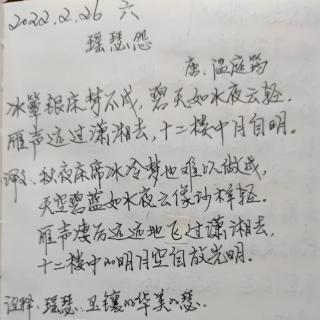 2022.2.26 六
瑶瑟怨
唐、温庭筠
冰簟银床梦不成，碧天如水夜云轻.
雁声远过潇湘去，十二楼中月自明。
译文：秋夜床席冰冷梦也难以做成
天空碧蓝如水夜云像沙样轻.
雁声凄厉远远地飞过潇湘去，
十二楼中的明月空自放光明.
注释：瑶瑟：玉镶的华美的瑟.